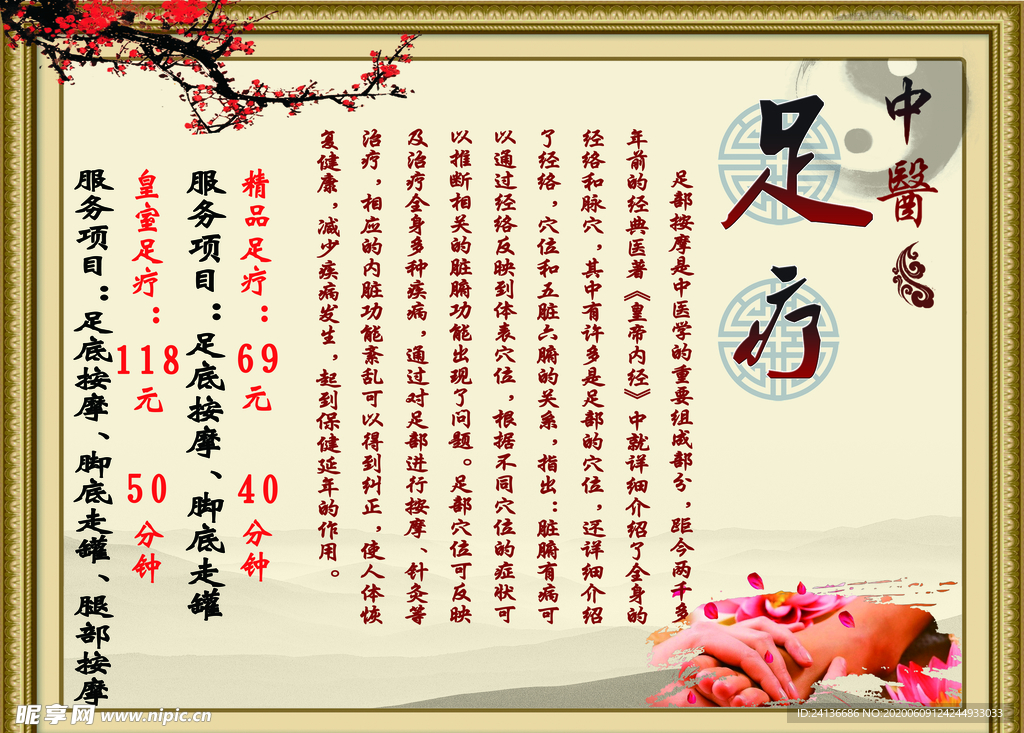 中醫
足疗
足部按摩是中医学的重要组成部分，距今两千多
年前的经典医著《皇帝内经》中就详细介绍了全身的
经络和脉穴，其中有许多是足部的穴位，还详细介绍
了经络，穴位和五脏六腑的关系，指出：脏腑有病可
以通过经络反映到体表穴位，根据不同穴位的症状可
以推断相关的脏腑功能出现了问题。足部穴位可反映
及治疗全身多种疾病，通过对足部进行按摩、针灸等
治疗，相应的内脏功能紊乱可以得到纠正，使人体恢
复健康，减少疾病发生，起到保健延年的作用。
精品足疗：69元 40分钟
服务项目：足底按摩、脚底走罐
皇室足疗：118元 50分钟
服务项目：足底按摩、脚底走罐、腿部按摩
昵享网 www.nipic.cn
ID:24136686 NO:20200609124244933033